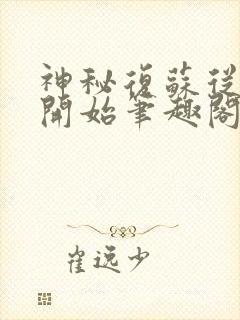 神秘復蘇從
開始筆趣閣
崔逸少